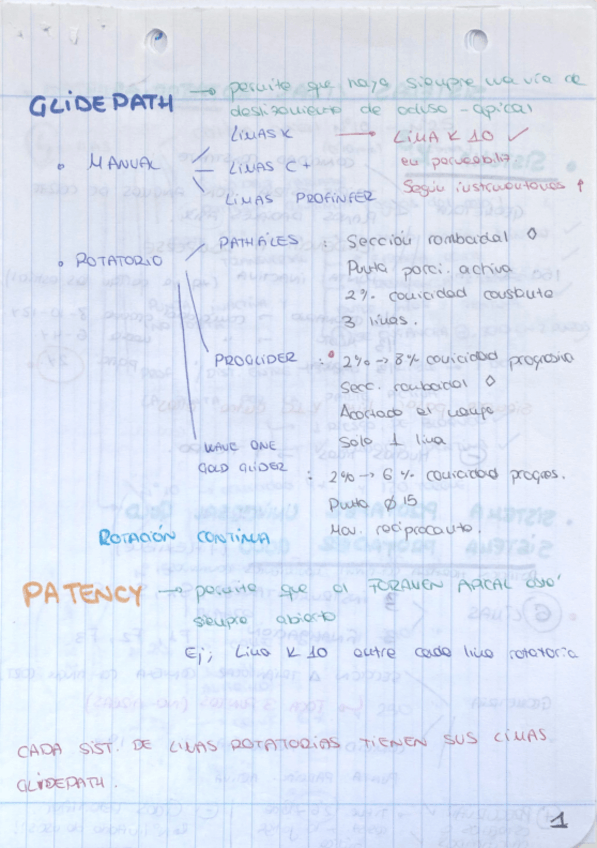 GLIDEPATH → permite que haya siempre una vía de
deslizamiento de acceso-apical
• MANUAL
LIMAS K → LIMA K 10 ✓
en permeabili
LIMAS C
Según instrumentamos ↑
LIMAS PROFINFER
• ROTATORIO
PATHFILES : Sección romboidal ◇
Punta parci. activa
2% conicidad constante
3 limas.
PROGLIDER : • 2% → 8% conicidad progresiva
Secc. romboidal ◇
Acortado el mango
Solo 1 lima
WAVE ONE
GOLD GLIDER : 2% → 6% conicidad progres.
Punta ∅ 15
Mov. reciprocante.
ROTACIÓN CONTINUA
PATENCY → permite que el FORAMEN APICAL esté
siempre abierto
Ej; Lima K 10 entre cada lima rotatoria
CADA SIST. DE LIMAS ROTATORIAS TIENEN SUS LIMAS
GLIDEPATH.
1